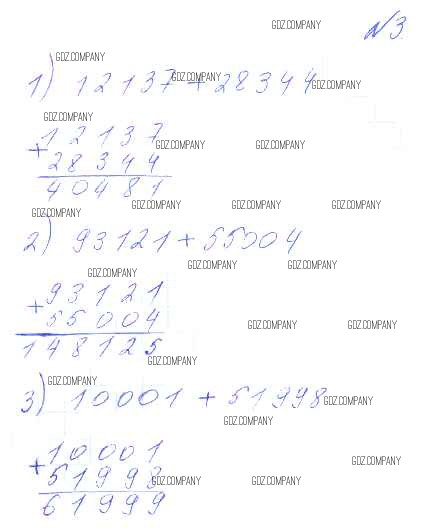 GDZ.COMPANY
№3
GDZ.COMPANY
1) 12137 + 28344
GDZ.COMPANY
GDZ.COMPANY
GDZ.COMPANY
12137
GDZ.COMPANY
GDZ.COMPANY
+
28344
40481
GDZ.COMPANY
GDZ.COMPANY
GDZ.COMPANY
GDZ.COMPANY
2) 93121 + 55004
GDZ.COMPANY
GDZ.COMPANY
GDZ.COMPANY
93121
+
55004
GDZ.COMPANY
GDZ.COMPANY
148125
GDZ.COMPANY
GDZ.COMPANY
3) 10001 + 51998
GDZ.COMPANY
GDZ.COMPANY
10001
GDZ.COMPANY
+
51998
GDZ.COMPANY
GDZ.COMPANY
61999